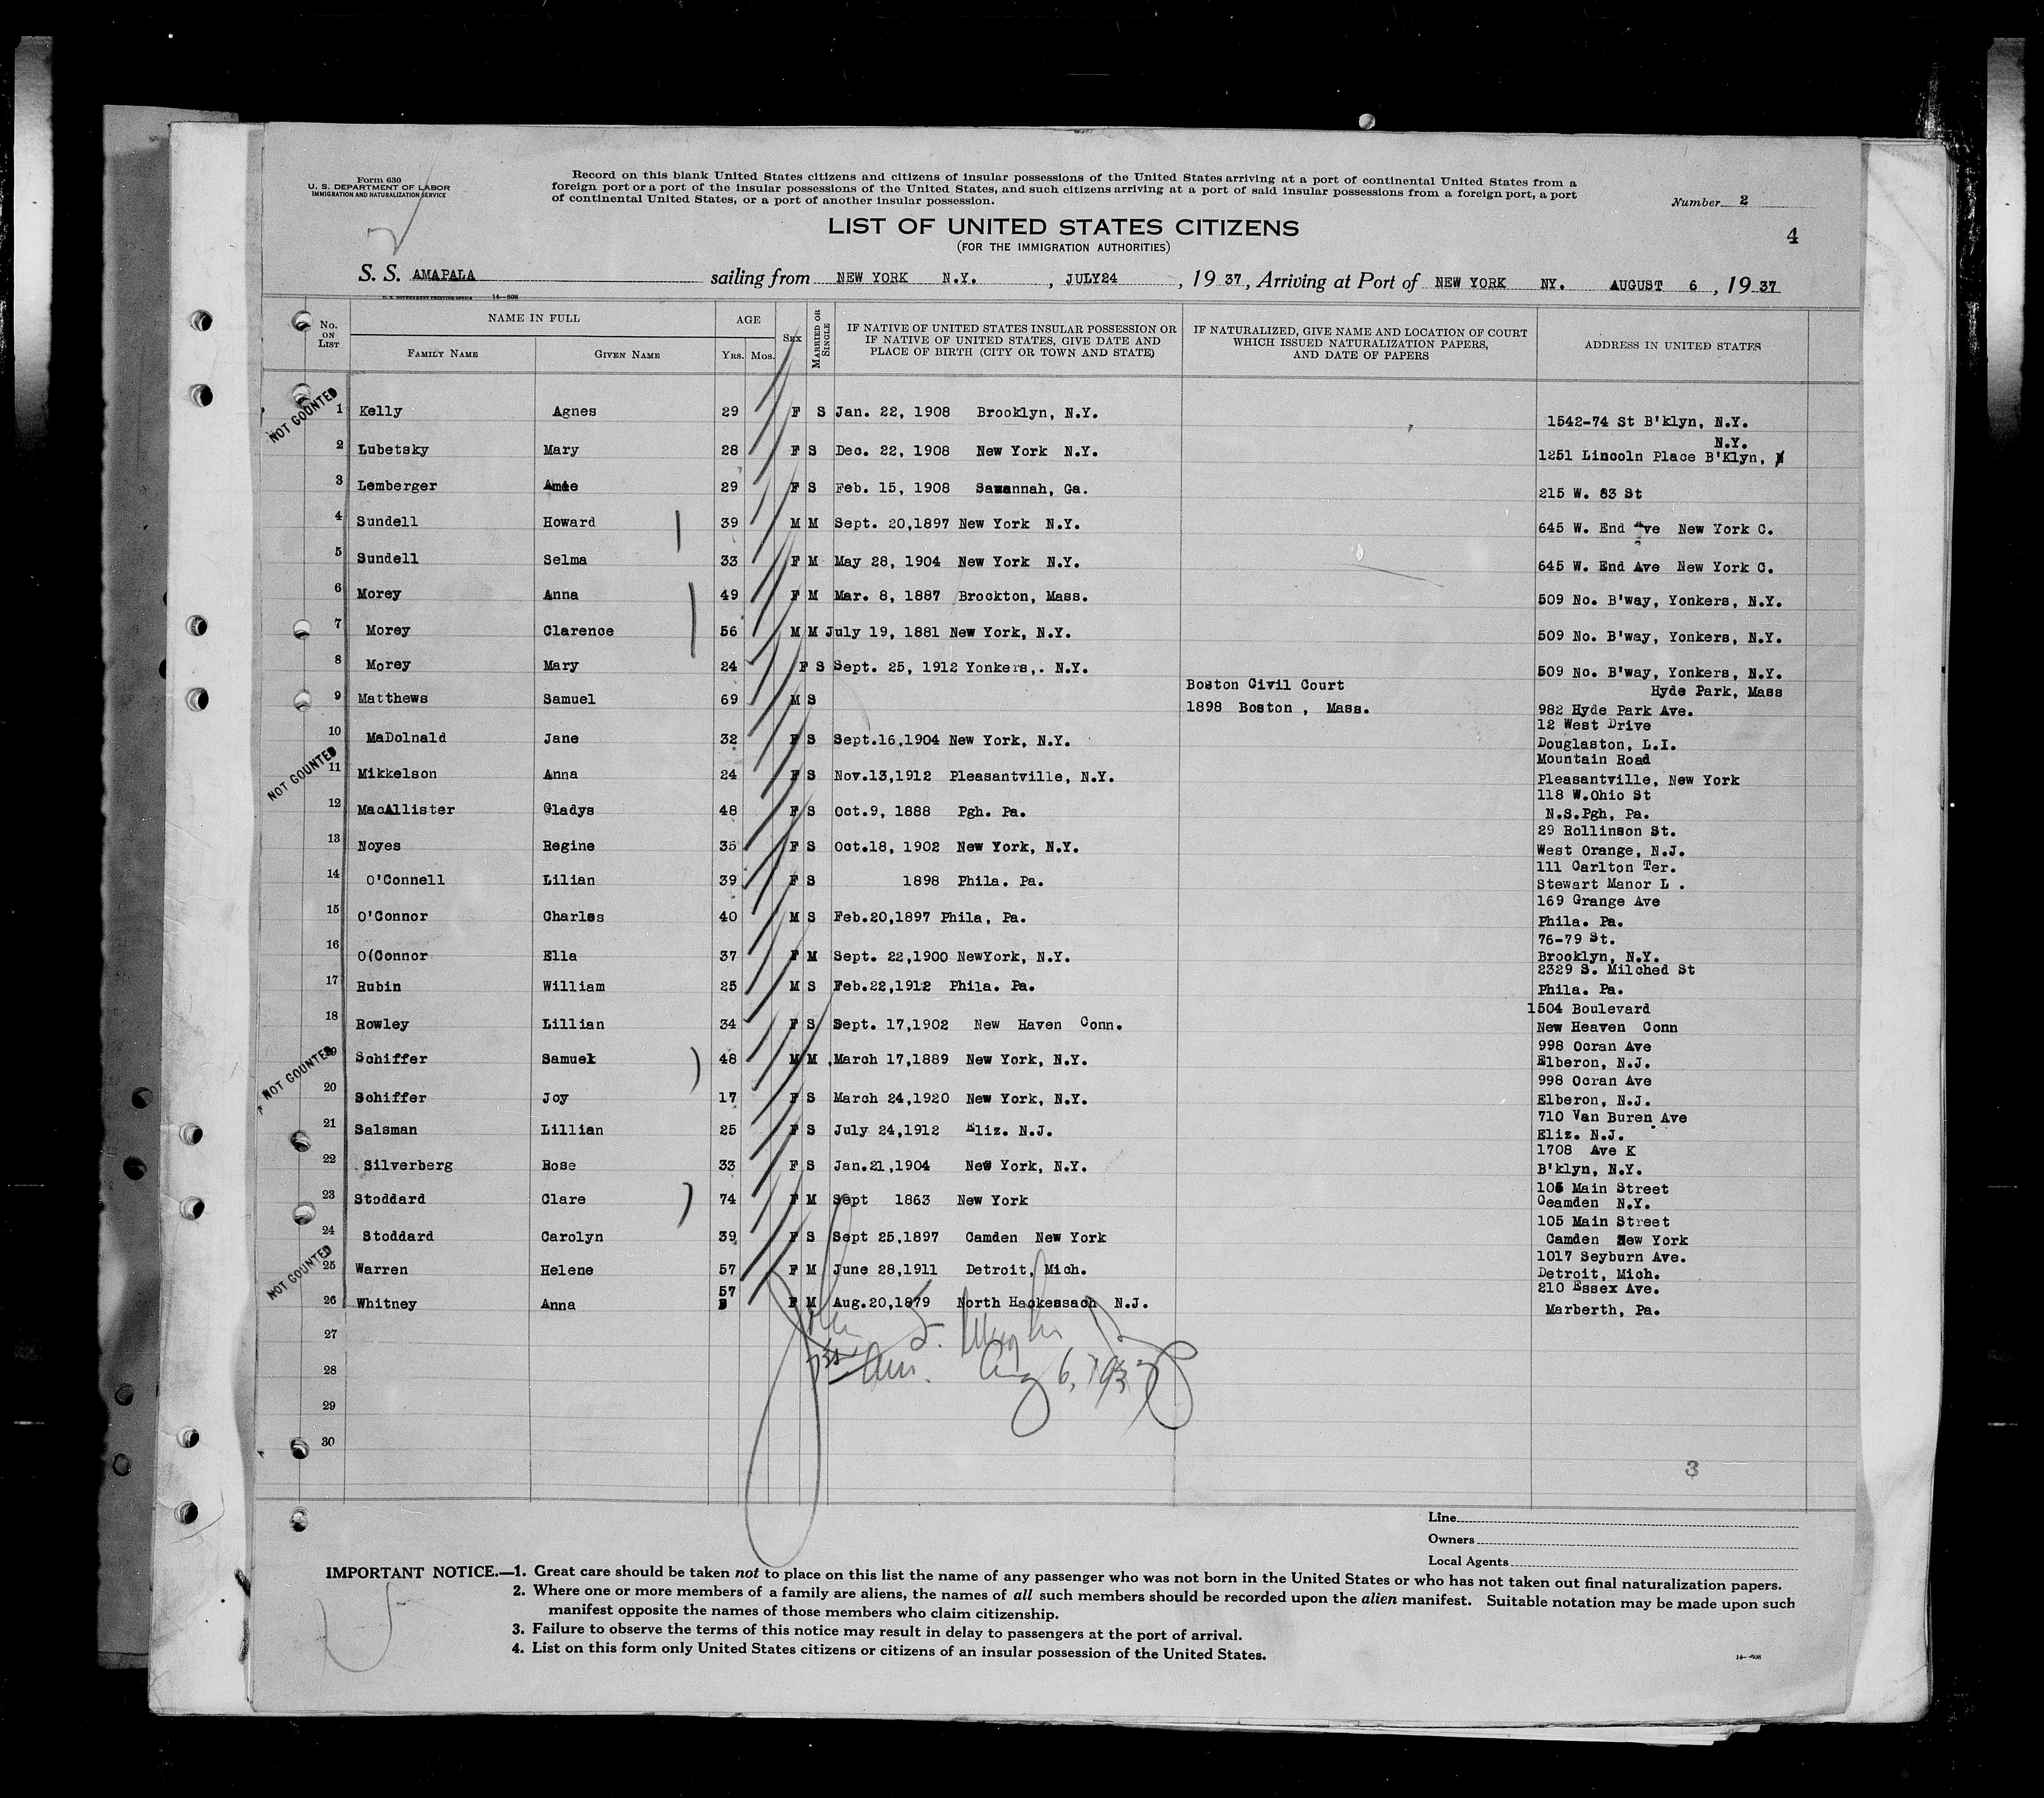 Form 630
U. S. DEPARTMENT OF LABOR
IMMIGRATION AND NATURALIZATION SERVICE
Record on this blank United States citizens and citizens of insular possessions of the United States arriving at a port of continental United States from a
foreign port or a port of the insular possessions of the United States, and such citizens arriving at a port of said insular possessions from a foreign port, a port
of continental United States, or a port of another insular possession.
Number 2
LIST OF UNITED STATES CITIZENS
(FOR THE IMMIGRATION AUTHORITIES)
4
S. S. AMAPALA sailing from NEW YORK N.Y. , JULY24 , 19 37, Arriving at Port of NEW YORK NY. AUGUST 6 , 19 37
U. S. GOVERNMENT PRINTING OFFICE 14—608
No. ON LIST
NAME IN FULL
FAMILY NAME
GIVEN NAME
AGE
Yrs. Mos.
SEX
MARRIED OR SINGLE
IF NATIVE OF UNITED STATES INSULAR POSSESSION OR
IF NATIVE OF UNITED STATES, GIVE DATE AND
PLACE OF BIRTH (CITY OR TOWN AND STATE)
IF NATURALIZED, GIVE NAME AND LOCATION OF COURT
WHICH ISSUED NATURALIZATION PAPERS,
AND DATE OF PAPERS
ADDRESS IN UNITED STATES
NOT COUNTED
1 Kelly Agnes 29 F S Jan. 22, 1908 Brooklyn, N.Y. 1542-74 St B'klyn, N.Y.
N.Y.
2 Lubetsky Mary 28 F S Dec. 22, 1908 New York N.Y. 1251 Lincoln Place B'Klyn,
3 Lemberger 29 F S Feb. 15, 1908 Savannah, Ga. 215 W. 83 St
4 Sundell Howard 39 M M Sept. 20,1897 New York N.Y. 645 W. End Ave New York C.
5 Sundell Selma 33 F M May 28, 1904 New York N.Y. 645 W. End Ave New York C.
6 Morey Anna 49 F M Mar. 8, 1887 Brockton, Mass. 509 No. B'way, Yonkers, N.Y.
7 Morey Clarence 56 M M July 19, 1881 New York, N.Y. 509 No. B'way, Yonkers, N.Y.
8 Morey Mary 24 F S Sept. 25, 1912 Yonkers,. N.Y. 509 No. B'way, Yonkers, N.Y.
Boston Civil Court Hyde Park, Mass
9 Matthews Samuel 69 M S 1898 Boston , Mass. 982 Hyde Park Ave.
12 West Drive
10 MaDolnald Jane 32 F S Sept.16,1904 New York, N.Y. Douglaston, L.I.
NOT COUNTED
Mountain Road
11 Mikkelson Anna 24 F S Nov.13,1912 Pleasantville, N.Y. Pleasantville, New York
118 W.Ohio St
12 MacAllister Gladys 48 F S Oct.9, 1888 Pgh. Pa. N.S.Pgh, Pa.
29 Rollinson St.
13 Noyes Regine 35 F S Oct.18, 1902 New York, N.Y. West Orange, N.J.
111 Carlton Ter.
14 O'Connell Lilian 39 F S 1898 Phila. Pa. Stewart Manor L .
169 Grange Ave
15 O'Connor Charles 40 M S Feb.20,1897 Phila, Pa. Phila. Pa.
76-79 St.
16 O(Connor Ella 37 F M Sept. 22,1900 NewYork, N.Y. Brooklyn, N.Y.
2329 S. Milched St
17 Rubin William 25 M S Feb.22,1912 Phila. Pa. Phila. Pa.
1504 Boulevard
18 Rowley Lillian 34 F S Sept. 17,1902 New Haven Conn. New Heaven Conn
998 Ocran Ave
NOT COUNTED
19 Schiffer Samuel 48 M M March 17,1889 New York, N.Y. Elberon, N.J.
998 Ocran Ave
20 Schiffer Joy 17 F S March 24,1920 New York, N.Y. Elberon, N.J.
710 Van Buren Ave
21 Salsman Lillian 25 F S July 24,1912 Eliz. N.J. Eliz. N.J.
1708 Ave K
22 Silverberg Rose 33 F S Jan.21,1904 New York, N.Y. B'klyn, N.Y.
105 Main Street
23 Stoddard Clare 74 F M Sept 1863 New York Ceamden N.Y.
105 Main Street
24 Stoddard Carolyn 39 F S Sept 25,1897 Camden New York Camden New York
NOT COUNTED
1017 Seyburn Ave.
25 Warren Helene 57 F M June 28,1911 Detroit, Mich. Detroit, Mich.
57 210 Essex Ave.
26 Whitney Anna F M Aug.20,1879 North Hackessach N.J. Marberth, Pa.
27
28
Aug 6, 1937
29
30
3
Line
Owners
Local Agents
IMPORTANT NOTICE.—1. Great care should be taken not to place on this list the name of any passenger who was not born in the United States or who has not taken out final naturalization papers.
2. Where one or more members of a family are aliens, the names of all such members should be recorded upon the alien manifest. Suitable notation may be made upon such
manifest opposite the names of those members who claim citizenship.
3. Failure to observe the terms of this notice may result in delay to passengers at the port of arrival.
4. List on this form only United States citizens or citizens of an insular possession of the United States.
14—608